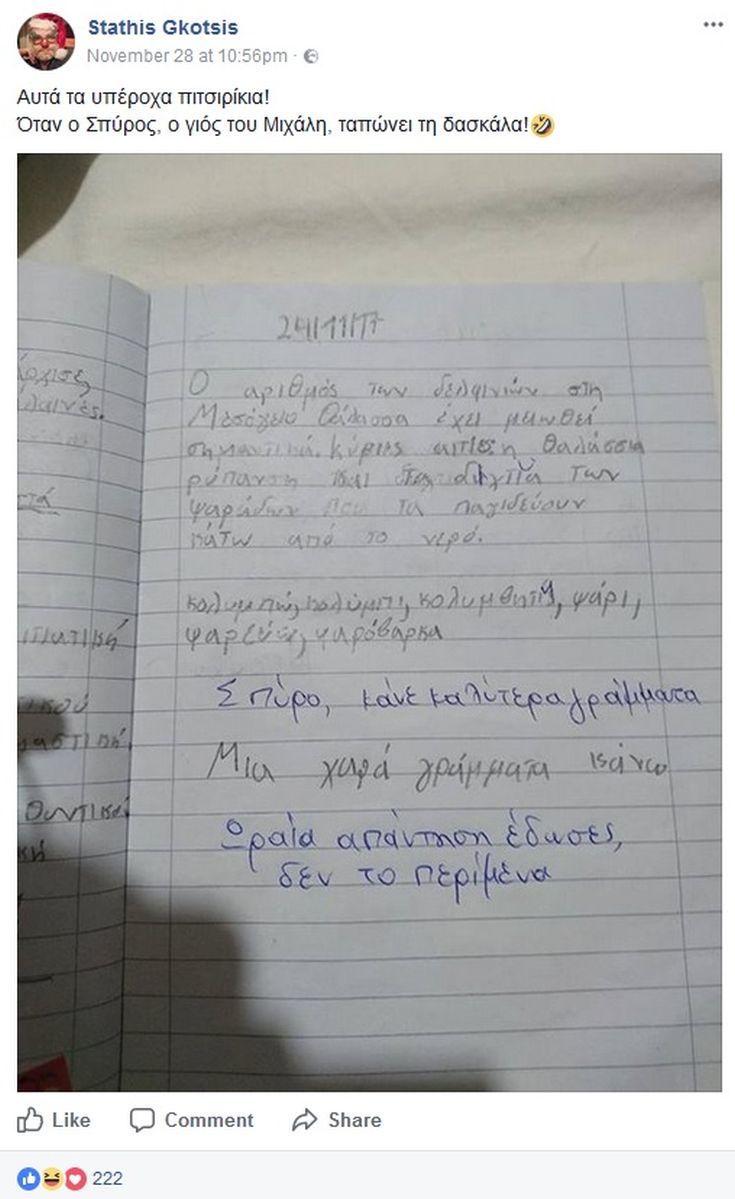 Stathis Gkotsis
November 28 at 10:56pm
Αυτά τα υπέροχα πιτσιρίκια!
Όταν ο Σπύρος, ο γιός του Μιχάλη, ταπώνει τη δασκάλα!
24/11/17
Ο αριθμός των δελφινιών στη
Μεσόγειο Θάλασσα έχει μειωθεί
σημαντικά. Κύριες αιτίες η θαλάσσια
ρύπανση και τα δίχτυα των
ψαράδων που τα παγιδεύουν
κάτω από το νερό.
κολυμπώ, κολύμπι, κολυμβητής, ψάρι,
ψαρεύω, ψαρόβαρκα
Σπύρο, κάνε καλύτερα γράμματα
Μια χαρά γράμματα κάνω
Ωραία απάντηση έδωσες,
δεν το περίμενα
Like Comment Share
222